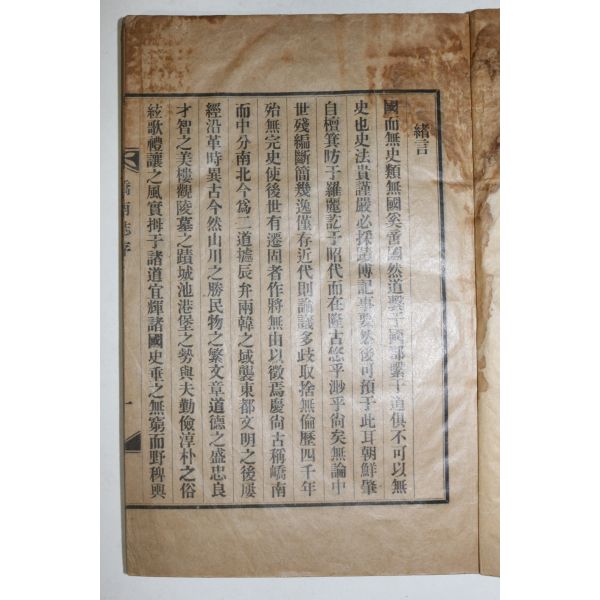 緖言
國而無史類無國奚啻國然道繫于國部繫于道俱不可以無
史也史法貴謹嚴必採蹟傳記事要然後可預于此耳朝鮮肇
自檀箕昉于羅麗訖于昭代而在隆古悠乎渺乎尙矣無論中
世殘編斷簡幾逸僅存近代則論議多歧取捨無倫歷四千年
殆無完史使後世有遷固者作將無由以徵焉慶尙古稱嶠南
而中分南北今爲二道據辰弁兩韓之域襲東都文明之後屢
經沿革時異古今然山川之勝民物之繁文章道德之盛忠良
才智之美樓觀陵墓之蹟城池港堡之勞與夫勤儉淳朴之俗
絃歌禮讓之風實拇于諸道宜輝諸國史垂之無窮而野稗興
嶠南誌序
一